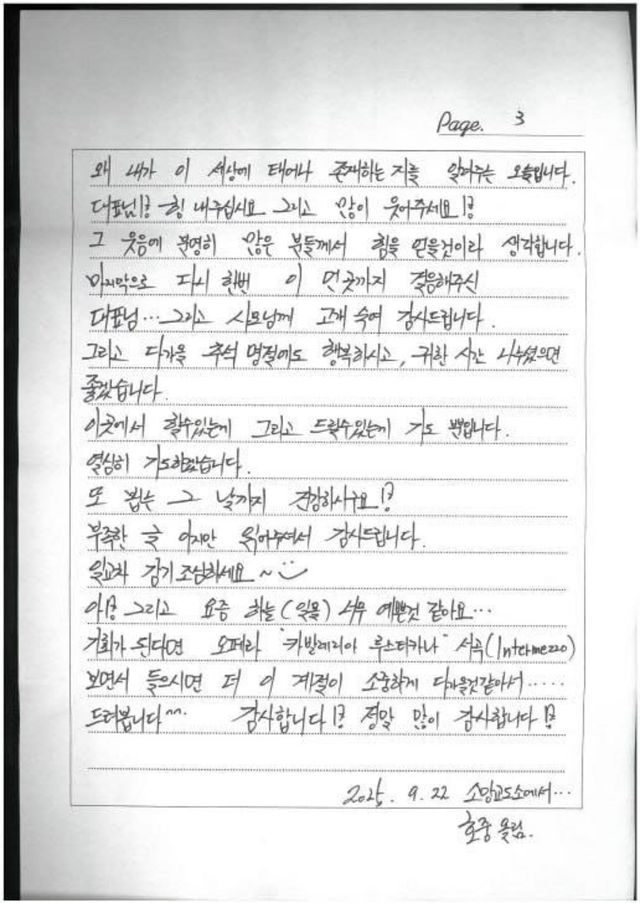 Page. 3
왜 내가 이 세상에 태어나 존재하는 지를 알려주는 오늘입니다.
대표님!! 힘 내주십시요 그리고 많이 웃어주세요!!
그 웃음에 분명히 많은 분들께서 힘을 얻을것이라 생각합니다.
마지막으로 다시 한번 이 먼곳까지 걸음해주신
대표님... 그리고 사모님께 고개 숙여 감사드립니다.
그리고 다가올 추석 명절에도 행복하시고, 귀한 시간 나누셨으면
좋겠습니다.
이곳에서 할수있는게 그리고 드릴수있는게 기도 뿐입니다.
열심히 기도하겠습니다.
또 뵙는 그 날까지 건강하시구요!!
부족한 글 이지만 읽어주셔서 감사드립니다.
일교차 감기조심하세요~
아!! 그리고 요즘 하늘(일몰) 너무 예쁜것 같아요...
기회가 된다면 오페라 "카발레리아 루스티카나" 서곡(Intermezzo)
보면서 들으시면 더 이 계절이 소중하게 다가올것같아서.....
드려봅니다^^ 감사합니다!! 정말 많이 감사합니다!!
2025. 9. 22 소망교도소에서...
호중 올림.